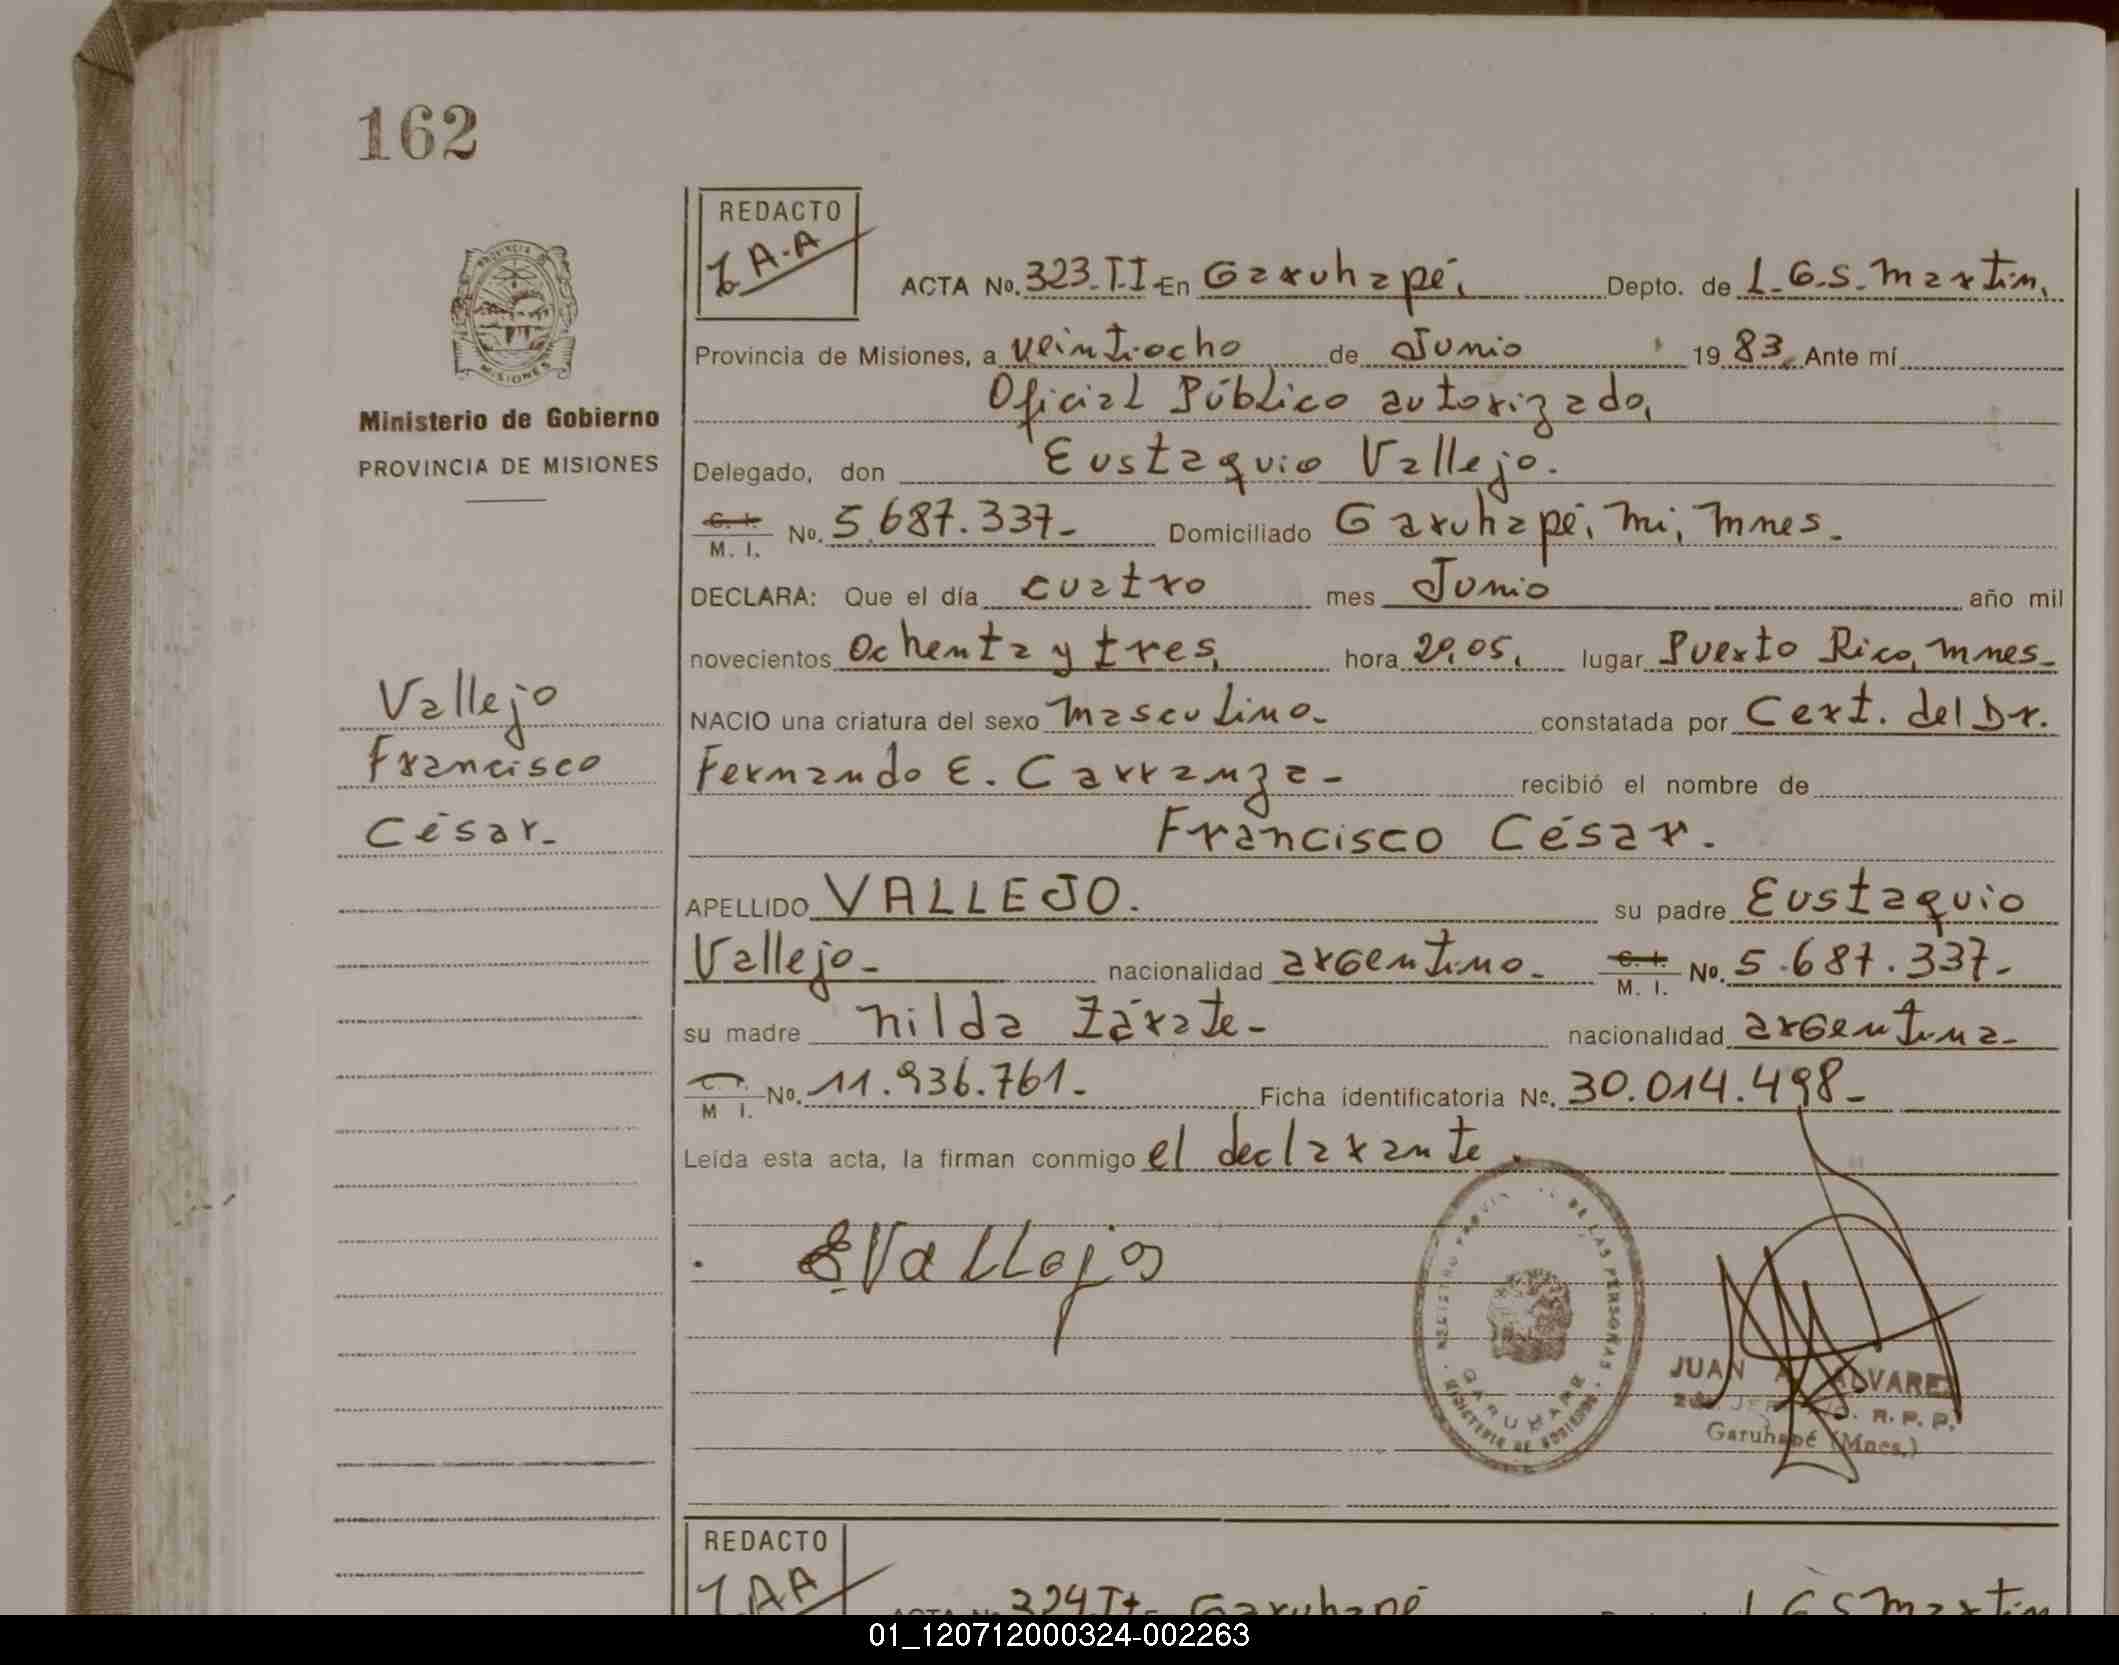 162
REDACTO
A-A
ACTA No. 323-T.I-En Garuhapé, Depto. de L-G.S. Martín,
Provincia de Misiones, a veintiocho de Junio 19 83, Ante mí
Oficial Público autorizado,
Delegado, don Eustaquio Vallejo.
C. I. M. I. No. 5.687.337- Domiciliado Garuhapé, Mi, Mnes-
DECLARA: Que el día cuatro mes Junio año mil
novecientos Ochenta y tres, hora 20,05, lugar Puerto Rico, Mnes-
NACIO una criatura del sexo masculino- constatada por Cert. del Dr.
Fernando E. Carranza- recibió el nombre de
Francisco César.
APELLIDO VALLEJO. su padre Eustaquio
Vallejo- nacionalidad argentino- C. I. M. I. No. 5.687.337-
su madre Nilda Zárate- nacionalidad argentina-
M I. No. 11.936.761- Ficha identificatoria No. 30.014.498-
Leída esta acta, la firman conmigo el declarante.
Ministerio de Gobierno
PROVINCIA DE MISIONES
Vallejo
Francisco
César-
EVallejos
REGISTRO PROVIN DE LAS PERSONAS
GARUHAPE
MINISTERIO DE GOBIERNO
JUAN A. ALVAREZ
R. P. P.
Garuhapé (Mnes.)
REDACTO
AA
ACTA No 324-TI- En Garuhapé L G S Martín
01_120712000324-002263